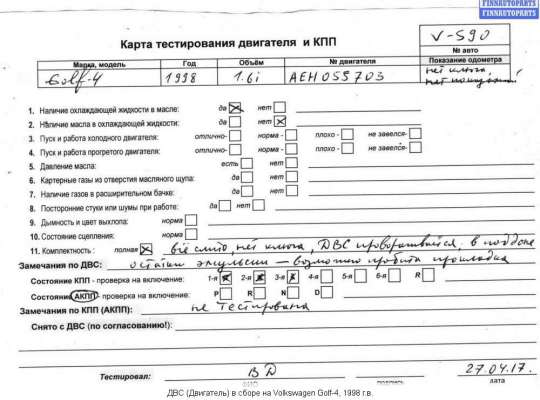 FINNAUTOPARTS
FINNAUTOPARTS
V-590
№ авто
Карта тестирования двигателя и КПП
Марка, модель Год Объём № двигателя Показание одометра
Golf-4 1998 1.6i AEH055703 нет ключа,
нет показаний
1. Наличие охлаждающей жидкости в масле: да нет
2. Наличие масла в охлаждающей жидкости: да нет
3. Пуск и работа холодного двигателя: отлично- норма - плохо - не завелся-
4. Пуск и работа прогретого двигателя: отлично- норма - плохо - не завелся-
5. Давление масла: есть нет
6. Картерные газы из отверстия масляного щупа: да нет
7. Наличие газов в расширительном бачке: да нет
8. Посторонние стуки или шумы при работе: да нет
9. Дымность и цвет выхлопа: норма
10. Состояние сцепления: норма
11. Комплектность : полная всё слито, нет ключа, ДВС проворачивается, в поддоне
Замечания по ДВС: остатки эмульсии – возможно пробита прокладка
Состояние КПП - проверка на включение: 1-я 2-я 3-я 4-я 5-я 6-я R
Состояние АКПП - проверка на включение: P R N D
Замечания по КПП (АКПП): не тестирована
Снято с ДВС (по согласованию!):
Тестировал: ВД 27.04.17.
ФИО подпись дата
ДВС (Двигатель) в сборе на Volkswagen Golf-4, 1998 г.в.